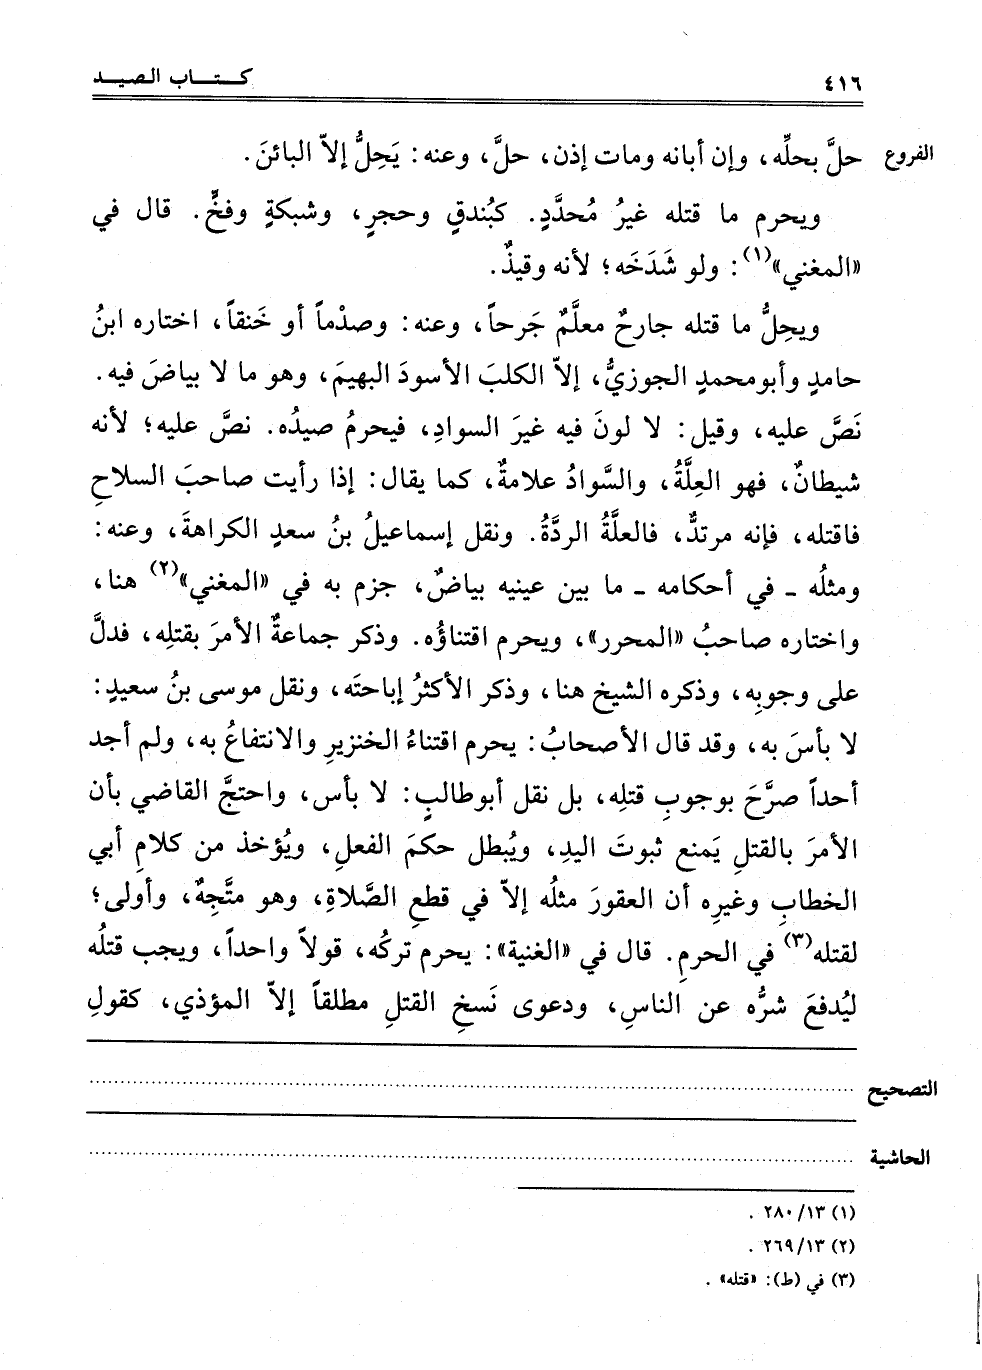 ٤١٦ كـتـاب الصيـد
الفروع حلَّ بحلِّه، وإن أبانه ومات إذن، حلَّ، وعنه: يَحِلُّ إلاّ البائنَ.
ويحرم ما قتله غيرُ مُحدَّدٍ. كبُندقٍ وحجرٍ، وشبكةٍ وفخٍّ. قال في
«المغني»(١): ولو شَدَخَه؛ لأنه وقيذٌ.
ويحِلُّ ما قتله جارحٌ معلَّمٌ جَرحاً، وعنه: وصدْماً أو خَنقاً، اختاره ابنُ
حامدٍ وأبومحمدٍ الجوزيُّ، إلاّ الكلبَ الأسودَ البهيمَ، وهو ما لا بياضَ فيه.
نَصَّ عليه، وقيل: لا لونَ فيه غيرَ السوادِ، فيحرمُ صيدُه. نصَّ عليه؛ لأنه
شيطانٌ، فهو العِلَّةُ، والسَّوادُ علامةٌ، كما يقال: إذا رأيت صاحبَ السلاحِ
فاقتله، فإنه مرتدٌّ، فالعلَّةُ الردَّةُ. ونقل إسماعيلُ بنُ سعدٍ الكراهةَ، وعنه:
ومثلُه ـ في أحكامه ـ ما بين عينيه بياضٌ، جزم به في «المغني»(٢) هنا،
واختاره صاحبُ «المحرر»، ويحرم اقتناؤه. وذكر جماعةٌ الأمرَ بقتلِه، فدلَّ
على وجوبِه، وذكره الشيخ هنا، وذكر الأكثرُ إباحتَه، ونقل موسى بنُ سعيدٍ:
لا بأسَ به، وقد قال الأصحابُ: يحرم اقتناءُ الخنزيرِ والانتفاعُ به، ولم أجد
أحداً صرَّحَ بوجوبِ قتلِه، بل نقل أبوطالبٍ: لا بأس، واحتجَّ القاضي بأن
الأمرَ بالقتلِ يَمنع ثبوتَ اليدِ، ويُبطل حكمَ الفعلِ، ويُؤخذ من كلامِ أبي
الخطابِ وغيرِه أن العقورَ مثلُه إلاّ في قطعِ الصَّلاةِ، وهو متَّجِهٌ، وأولى؛
لقتله(٣) في الحرمِ. قال في «الغنية»: يحرم تركُه، قولاً واحداً، ويجب قتلُه
ليُدفعَ شرُّه عن الناسِ، ودعوى نَسخِ القتلِ مطلقاً إلاّ المؤذي، كقولِ
التصحيح
الحاشية
(١) ٢٨٠/١٣ .
(٢) ٢٦٩/١٣ .
(٣) في (ط): «قتله» .